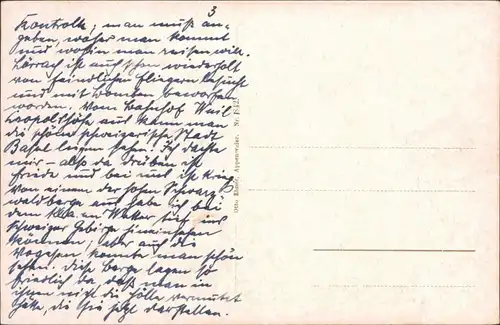 3
Kontrolle; man muß an-
geben, woher man kommt
und wohin man reisen will.
Lörrach ist auch schon wiederholt
von feindlichen Fliegern besucht
und mit Bomben beworfen
worden. Vom Bahnhof Weil
Leopoldshöhe aus kann man
die schöne schweizerische Stadt
Basel liegen sehen! Ich dachte
mir – also da drüben ist
Friede und bei uns ist Krieg.
Von einem der hohen Schwarz-
waldberge aus habe ich bei
dem klaren Wetter tief ins
Schweizer Gebirge hineinsehen
können; aber auch die
Vogesen konnte man schön
sehen. Diese Berge lagen so
friedlich da, daß man in
ihnen nicht die Hölle vermutet
hätte, die sie jetzt darstellen.
Otto Elsner, Appenweier. Nr.